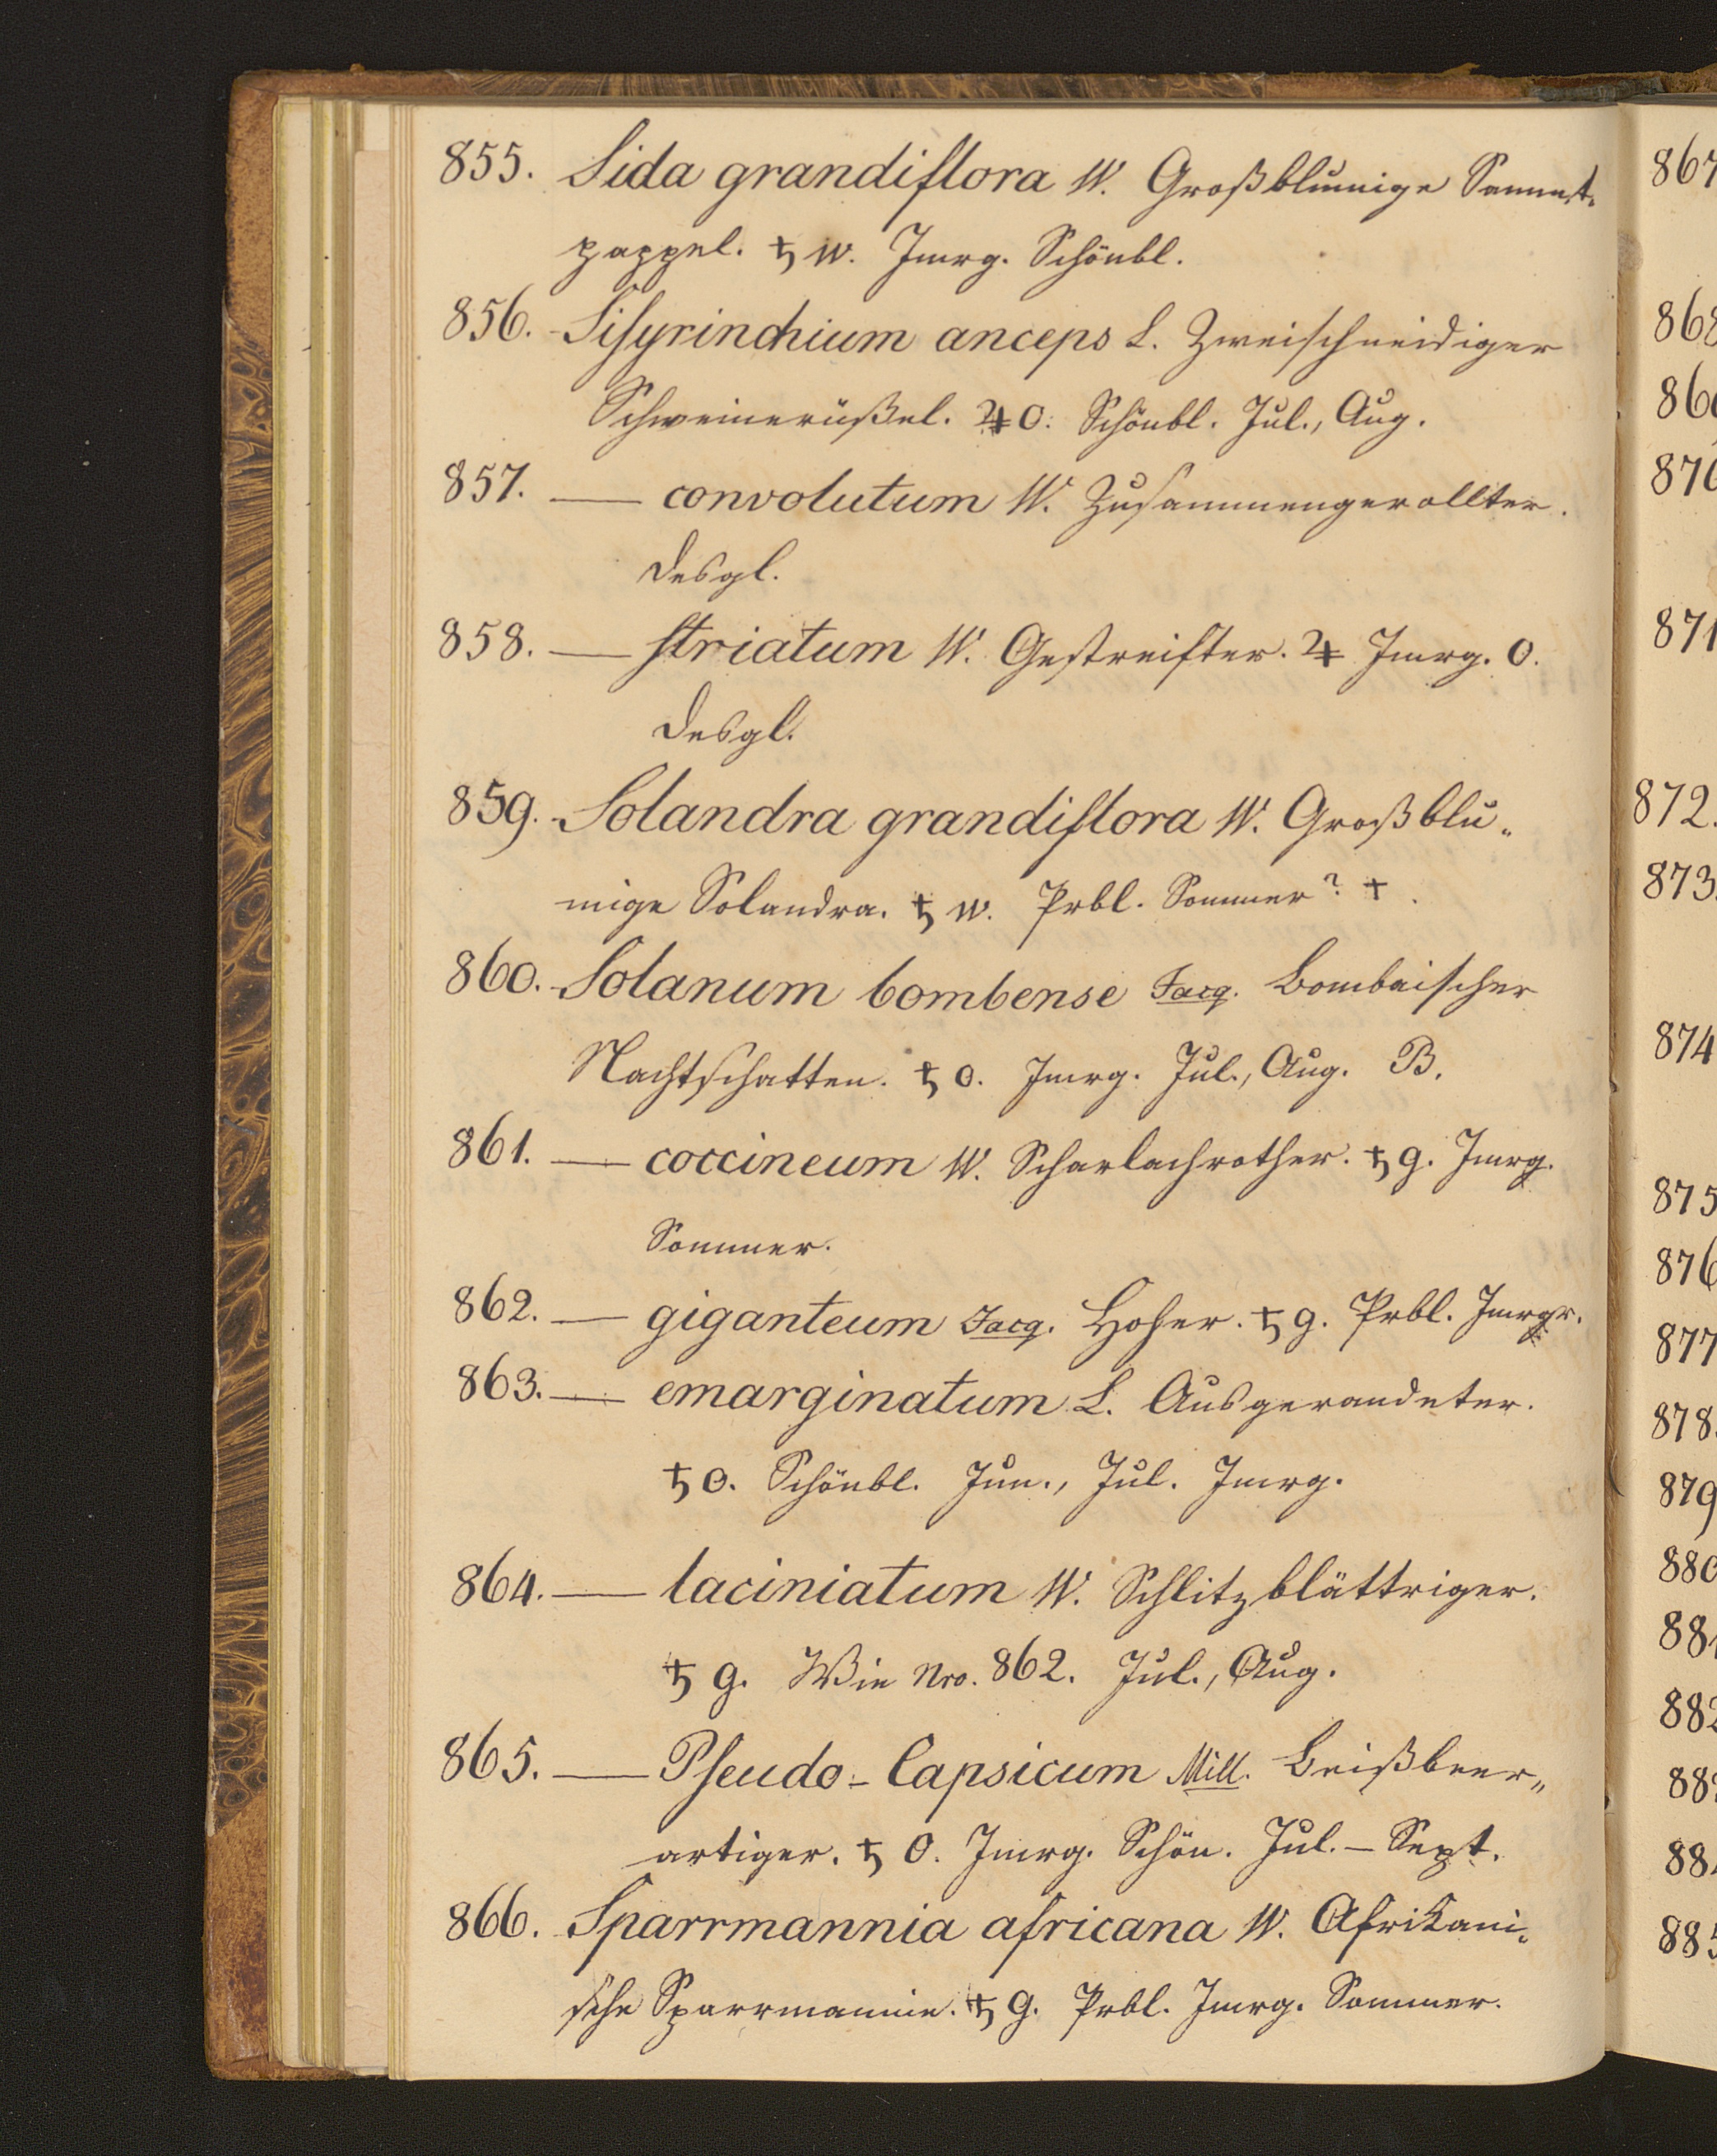 855. Sida grandiflora W. Großblumige Sammt-
pappel. ♄ w. Jmrg. Schönbl.
856. Siſyrinchium anceps L. Zweischneidiger
Schweinerüßel. ♃ O. Schönbl. Jul., Aug.
857. — convolutum W. Zusammengerollter.
Desgl.
858. — ſtriatum W. Gestreifter. ♃ Jmrg. O.
Desgl.
859. Solandra grandiflora W. Großblu-
mige Solandra. ♄ w. Prbl. Sommer? +
860. Solanum bombense Jacq. Bombaischer
Nachtschatten. ♄ o. Jmrg. Jul., Aug. B.
861. — coccineum W. Scharlachrother. ♄ g. Jmrg.
Sommer.
862. — giganteum Jacq. Hoher. ♄ g. Prbl. Jmrgr.
863. — emarginatum L. Ausgerandeter.
♄ O. Schönbl. Jun., Jul. Jmrg.
864. — laciniatum W. Schlitzblättriger.
♄ g. Wie Nro. 862. Jul., Aug.
865. — Pſeudo-Capsicum Mill. Beißbeer-
artiger. ♄ O. Jmrg. Schön. Jul. – Sept.
866. Sparrmannia africana W. Afrikani-
sche Sparrmannie. ♄ g. Prbl. Jmrg. Sommer.
867
868
870
871
872.
873.
874
875
876
877
878.
879
880
881
882
885